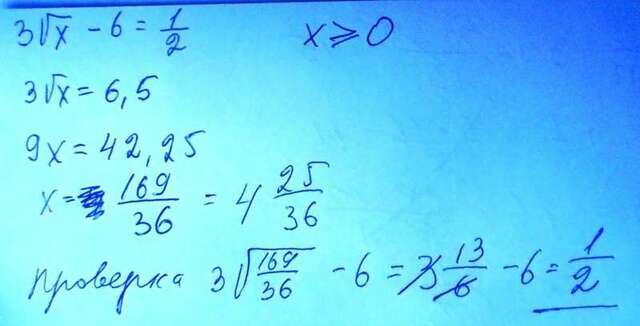 3√x - 6 = 1/2 x ⩾ 0
3√x = 6,5
9x = 42,25
x = 169/36 = 4 25/36
проверка 3√(169/36) - 6 = 3 13/6 - 6 = 1/2